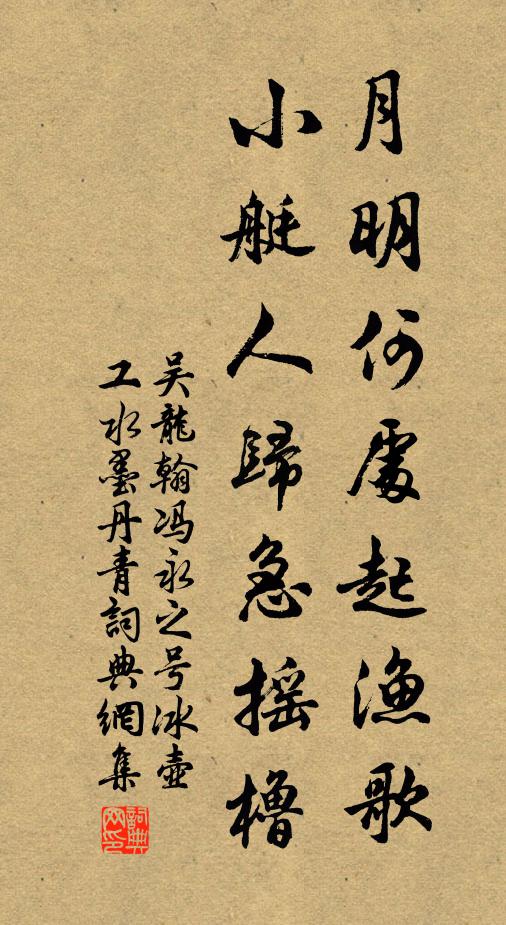 月明何處起漁歌
小艇人歸急摇櫓
吴龍翰冯永之号冰壶
工水墨丹青詞典網集
詞典
网印